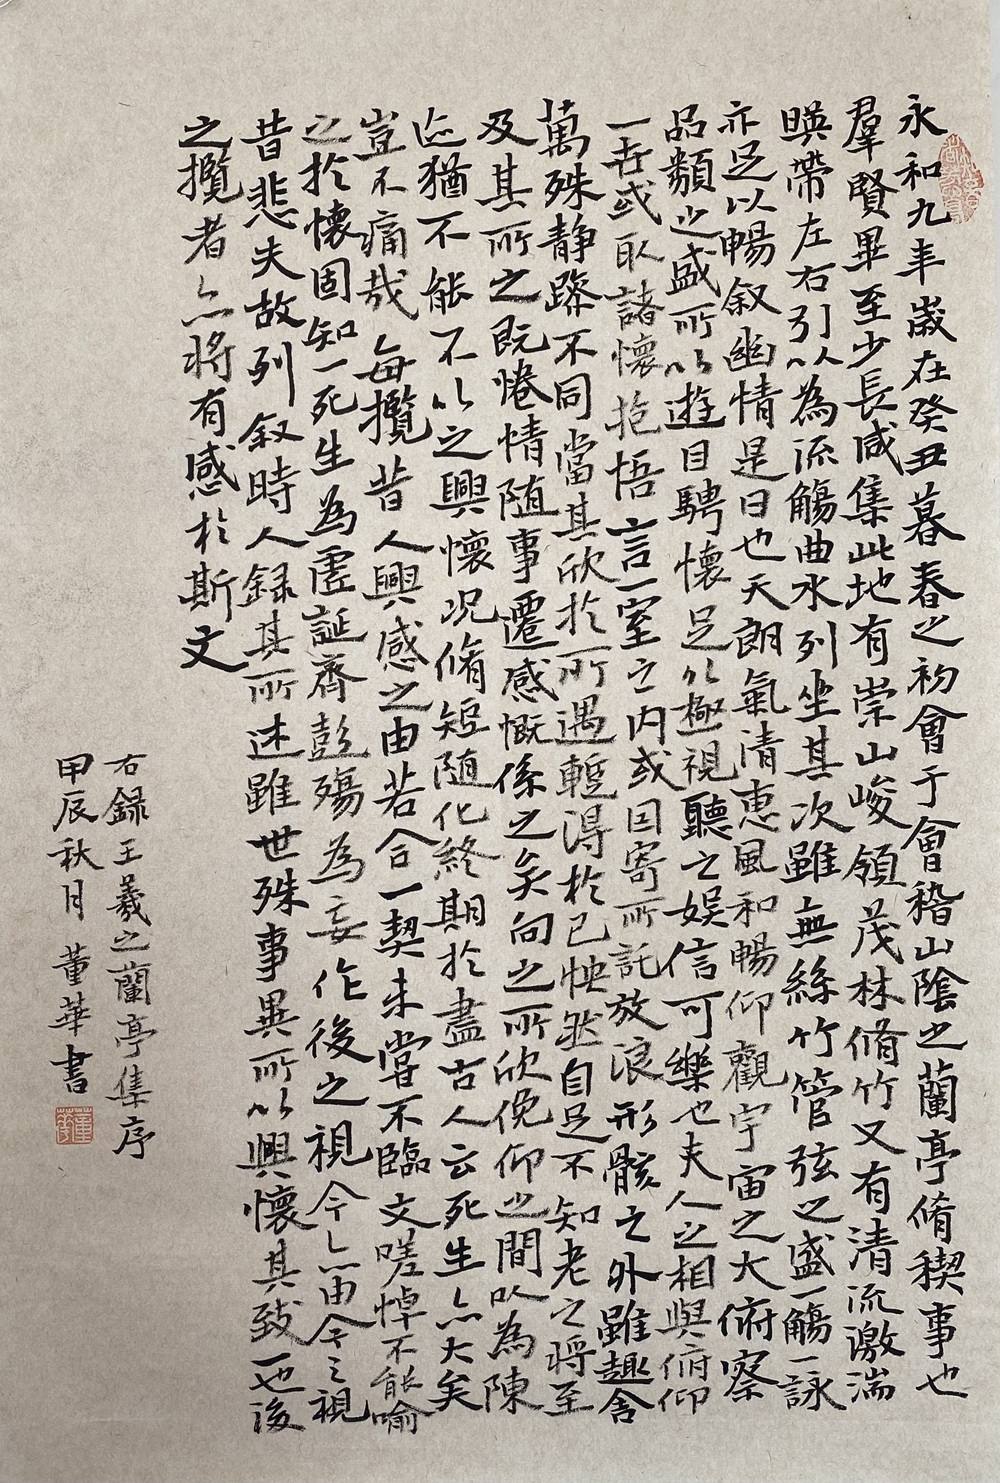 永和九年歲在癸丑暮春之初會于會稽山陰之蘭亭脩稧事也
羣賢畢至少長咸集此地有崇山峻領茂林脩竹又有清流激湍
暎帶左右引以為流觴曲水列坐其次雖無絲竹管弦之盛一觴一詠
亦足以暢叙幽情是日也天朗氣清惠風和暢仰觀宇宙之大俯察
品類之盛所以遊目騁懷足以極視聽之娛信可樂也夫人之相與俯仰
一世或取諸懷抱悟言一室之内或因寄所託放浪形骸之外雖趣舍
萬殊静躁不同當其欣於所遇蹔得於己怏然自足不知老之將至
及其所之既惓情随事遷感慨係之矣向之所欣俛仰之間以為陳
迹猶不能不以之興懷况脩短随化終期於盡古人云死生亦大矣
豈不痛哉每攬昔人興感之由若合一契未嘗不臨文嗟悼不能喻
之於懷固知一死生為虛誕齊彭殤為妄作後之視今亦由今之視
昔悲夫故列叙時人録其所述雖世殊事異所以興懷其致一也後
之攬者亦將有感於斯文
右録王羲之蘭亭集序
甲辰秋月董華書
董華